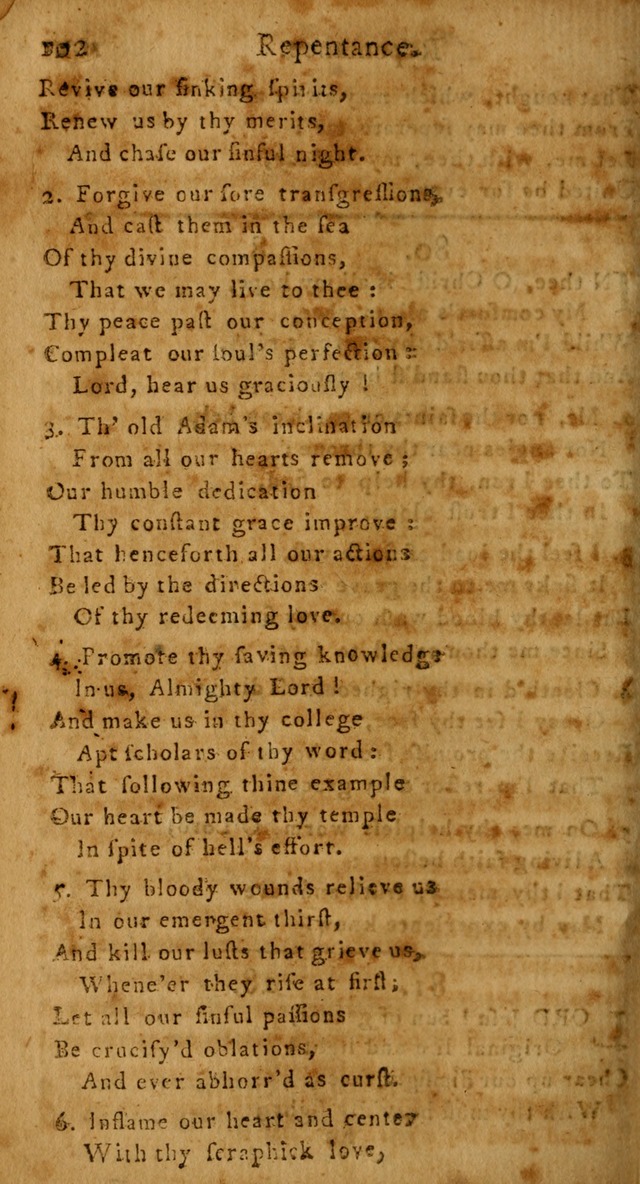 Repentance.
Revive our ſinking ſpirits,
Renew us by thy merits,
And chaſe our ſinful night.
2. Forgive our ſore tranſgreſſions,
And caſt them in the ſea
Of thy divine compaſſions,
That we may live to thee :
Thy peace paſt our conception,
Compleat our ſoul's perfection :
Lord, hear us graciouſly !
3. Th' old Adam's inclination
From all our hearts remove ;
Our humble dedication
Thy conſtant grace improve :
That henceforth all our actions
Be led by the directions
Of thy redeeming love.
4. Promote thy ſaving knowledge
In us, Almighty Lord !
And make us in thy college
Apt ſcholars of thy word :
That following thine example
Our heart be made thy temple
In ſpite of hell's effort.
5. Thy bloody wounds relieve us
In our emergent thirſt,
And kill our luſts that grieve us,
Whene'er they riſe at firſt ;
Let all our ſinful paſſions
Be crucify'd oblations,
And ever abhorr'd as curſt.
6. Inflame our heart and center
With thy ſeraphick love,